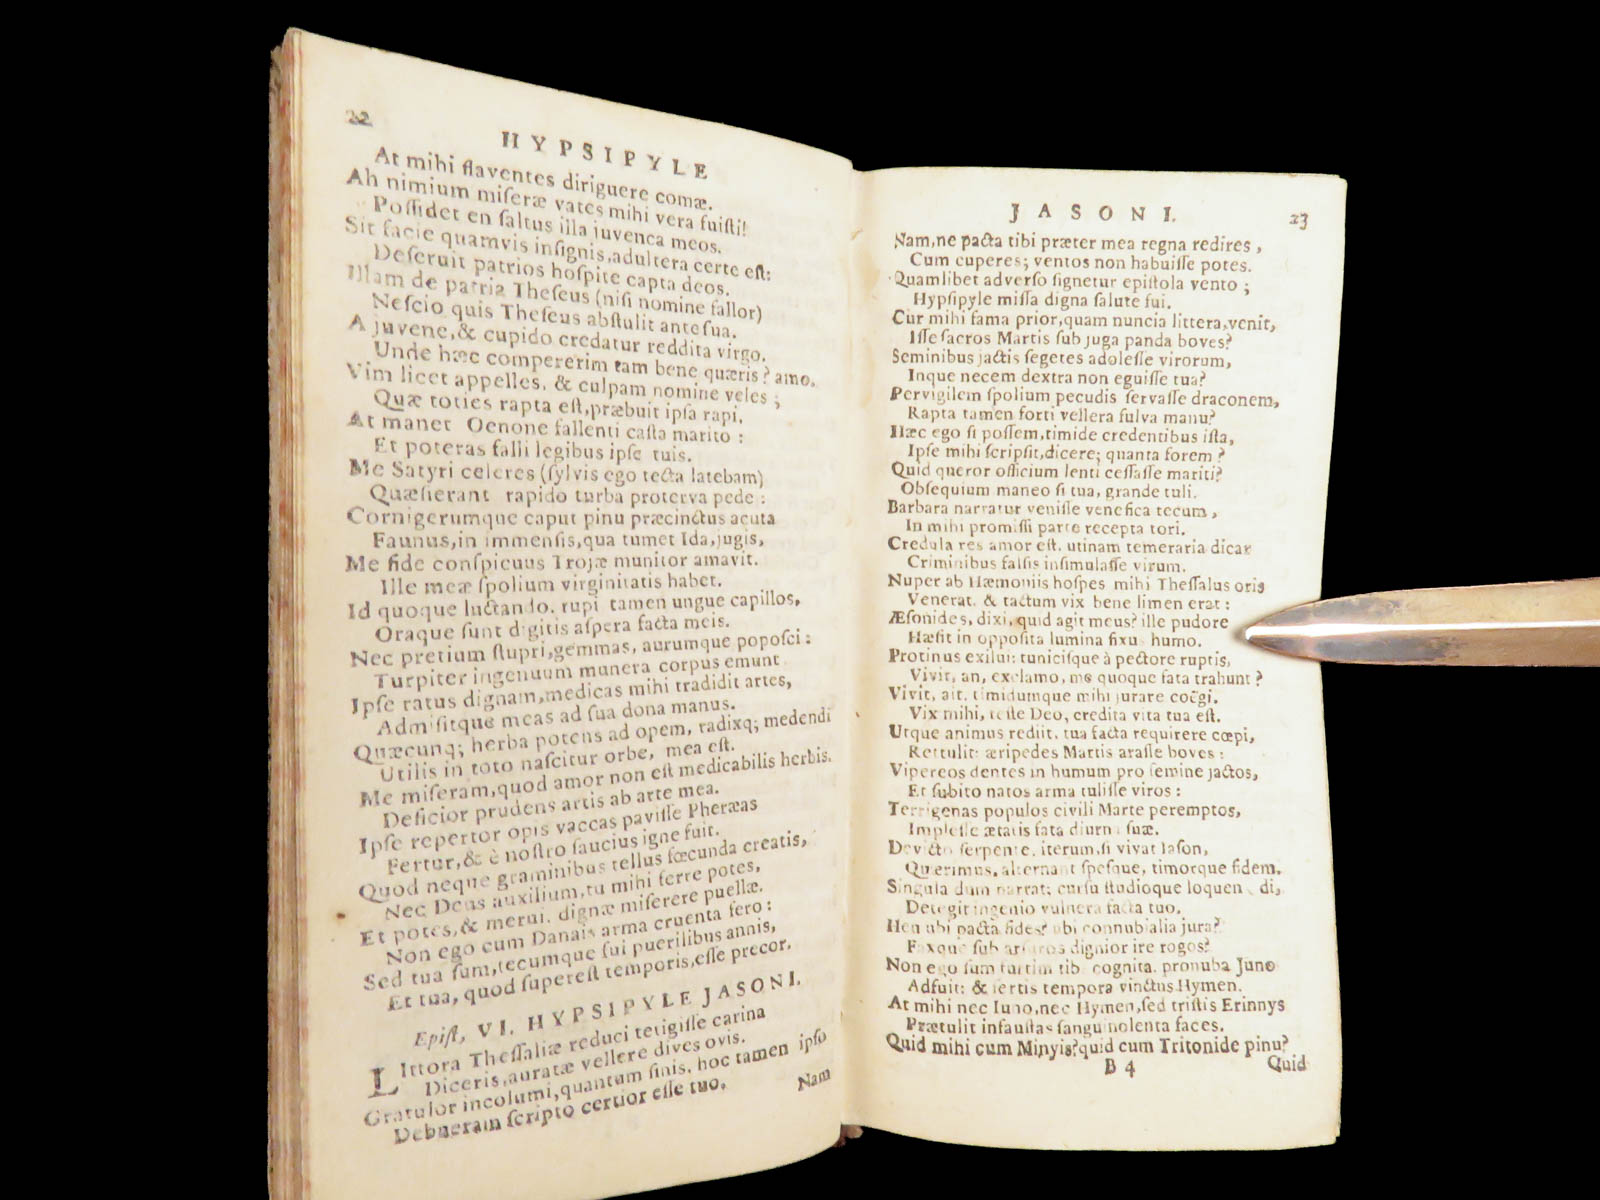 22
HYPSIPYLE
At mihi flaventes diriguere comæ.
Ah nimium miſeræ vates mihi vera fuiſti!
Poſſidet en ſaltus illa juvenca meos.
Sit facie quamvis inſignis,adultera certe eſt:
Deſeruit patrios hoſpite capta deos.
Illam de patria Theſeus (niſi nomine fallor)
Neſcio quis Theſeus abſtulit ante ſua.
A juvene,& cupido credatur reddita virgo.
Unde hæc compererim tam bene quæris? amo.
Vim licet appelles, & culpam nomine veles ;
Quæ toties rapta eſt,præbuit ipſa rapi.
At manet Oenone fallenti caſta marito :
Et poteras falli legibus ipſe tuis.
Me Satyri celeres (ſylvis ego tecta latebam)
Quæſierant rapido turba proterva pede :
Cornigerumque caput pinu præcinctus acuta
Faunus,in immenſis,qua tumet Ida,jugis,
Me fide conſpicuus Trojæ munitor amavit.
Ille meæ ſpolium virginitatis habet.
Id quoque luctando. rupi tamen ungue capillos,
Oraque ſunt digitis aſpera facta meis.
Nec pretium ſtupri,gemmas, aurumque popoſci :
Turpiter ingenuum munera corpus emunt
Ipſe ratus dignam,medicas mihi tradidit artes,
Admiſitque meas ad ſua dona manus.
Quæcunq; herba potens ad opem, radixq; medendi
Utilis in toto naſcitur orbe, mea eſt.
Me miſeram,quod amor non eſt medicabilis herbis.
Deficior prudens artis ab arte mea.
Ipſe repertor opis vaccas paviſſe Pheræas
Fertur,& è noſtro ſaucius igne fuit.
Quod neque graminibus tellus fœcunda creatis,
Nec Deus auxilium,tu mihi ferre potes,
Et potes,& merui. dignæ miſerere puellæ.
Non ego cum Danais arma cruenta fero :
Sed tua ſum,tecumque fui puerilibus annis,
Et tua, quod ſupereſt temporis,eſſe precor.
Epiſt, VI. HYPSIPYLE JASONI.
LIttora Theſſaliæ reduci tetigiſſe carina
Diceris,auratæ vellere dives ovis.
Gratulor incolumi,quantum ſinis. hoc tamen ipſo
Debueram ſcripto certior eſſe tuo.
Nam
JASONI.
23
Nam,ne pacta tibi præter mea regna redires ,
Cum cuperes; ventos non habuiſſe potes.
Quamlibet adverſo ſignetur epiſtola vento ;
Hypſipyle miſſa digna ſalute fui.
Cur mihi fama prior,quam nuncia littera,venit,
Iſſe ſacros Martis ſub juga panda boves?
Seminibus jactis ſegetes adoleſſe virorum,
Inque necem dextra non eguiſſe tua?
Pervigilem ſpolium pecudis ſervaſſe draconem,
Rapta tamen forti vellera fulva manu?
Hæc ego ſi poſſem,timide credentibus iſta,
Ipſe mihi ſcripſit,dicere; quanta forem ?
Quid queror officium lenti ceſſaſſe mariti?
Obſequium maneo ſi tua, grande tuli.
Barbara narratur veniſſe venefica tecum ,
In mihi promiſſi parte recepta tori.
Credula res amor eſt. utinam temeraria dicar
Criminibus falſis inſimulaſſe virum.
Nuper ab Hæmoniis hoſpes mihi Theſſalus oris
Venerat. & tactum vix bene limen erat :
Æſonides, dixi, quid agit meus? ille pudore
Hæſit in oppoſita lumina fixus humo.
Protinus exilui: tuniciſque à pectore ruptis,
Vivit, an, exclamo, me quoque fata trahunt ?
Vivit, ait. timidumque mihi jurare coëgi.
Vix mihi, teſte Deo, credita vita tua eſt.
Utque animus rediit, tua facta requirere cœpi,
Rettulit: æripedes Martis araſſe boves :
Vipereos dentes in humum pro ſemine jactos,
Et ſubito natos arma tuliſſe viros :
Terrigenas populos civili Marte peremptos,
Impleſſe ætatis fata diurna ſuæ.
Devicto ſerpente, iterum,ſi vivat Iaſon,
Quærimus, alternant ſpeſque, timorque fidem.
Singula dum narrat; curſu ſtudioque loquendi,
Detegit ingenio vulnera facta tuo.
Heu ubi pacta fides? ubi connubialia jura?
Faxque ſub arſuros dignior ire rogos?
Non ego ſum furtim tibi cognita. pronuba Juno
Adfuit: & ſertis tempora vinctus Hymen.
At mihi nec Iuno,nec Hymen,ſed triſtis Erinnys
Prætulit infauſtas ſanguinolenta faces.
Quid mihi cum Minyis?quid cum Tritonide pinu?
B 4
Quid